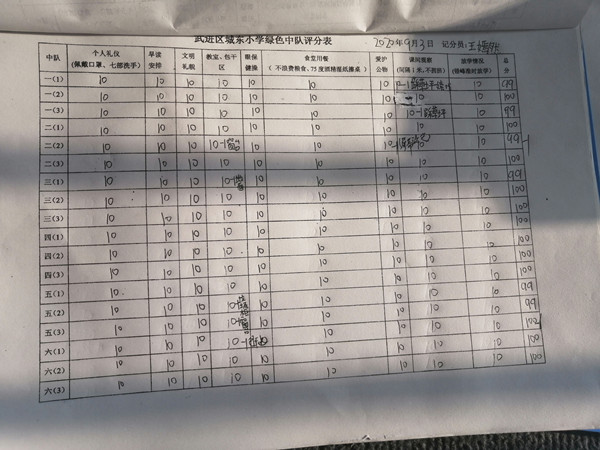 武进区城东小学绿色中队评分表 2020年9月3日 记分员：
中队 个人礼仪（佩戴口罩、七部洗手） 早读安排 文明礼貌 教室、包干区 眼保健操 食堂用餐（不浪费粮食，75度酒精湿纸擦桌） 爱护公物 课间观察（间隔1米，不拥挤） 放学情况（错峰准时放学） 总分
一(1) 10 10 10 10 10 10 10 10 99
一(2) 10 10 10 10 10 10 10 10 10 100
一(3) 10 10 10 10 10 10 10 10-1 10 99
二(1) 10 10 10 10 10 10 10 10 10 100
二(2) 10 10 10 10-1 10 10 10 10 99
二(3) 10 10 10 10 10 10 10 10 10 100
三(1) 10 10 10 10-1 10 10 10 10 10 99
三(2) 10 10 10 10 10 10 10 10 10 100
三(3) 10 10 10 10 10 10 10 10 10 100
四(1) 10 10 10 10 10 10 10 10 10 100
四(2) 10 10 10 10 10 10 10 10 10 100
四(3) 10 10 10 10 10 10 10 10 10 100
五(1) 10 10 10 10 10 10 10 10 10 99
五(2) 10 10 10 10 10 10 10 10 99
五(3) 10 10 10 10 10 10 10 10 10
六(1) 10 10 10 10-1 10 10 10 10 100
六(2) 10 10 10 10 10 10 10 10 10 100
六(3) 10 10 10 10 10 10 10 10 10